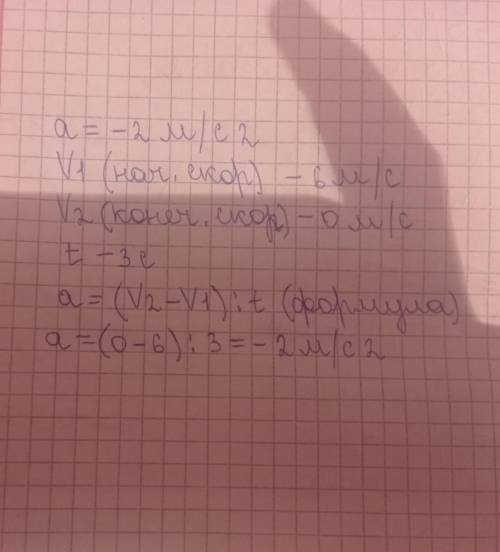 a = -2 м/с 2
V1 (нач. скор) - 6 м/с
V2 (конеч. скор) - 0 м/с
t - 3с
a = (V2 - V1) : t (формула)
a = (0 - 6) : 3 = - 2 м/с 2